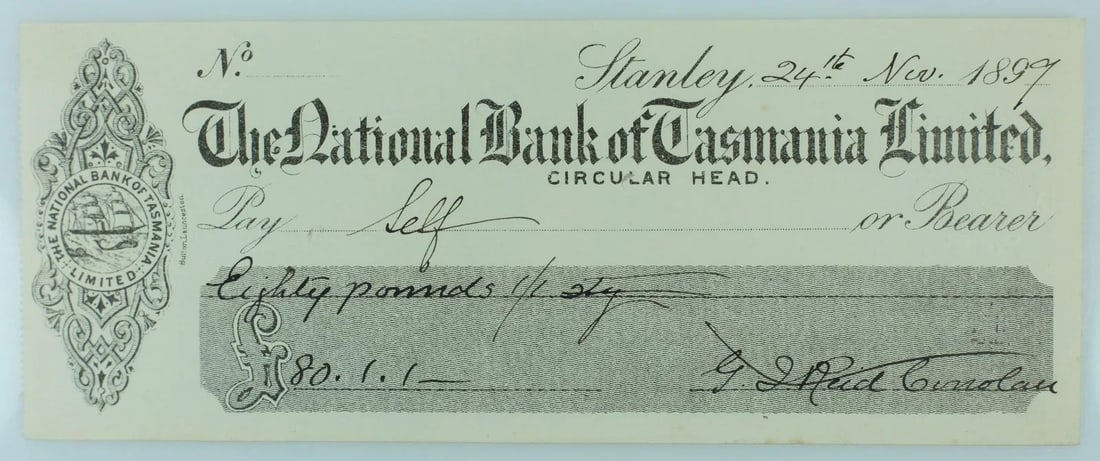 No. Stanley, 24th Nov. 1897
The National Bank of Tasmania Limited,
CIRCULAR HEAD.
Pay Self or Bearer
Eighty pounds 1/1 stg
£80.1.1
G. J. Reid
THE NATIONAL BANK OF TASMANIA
LIMITED